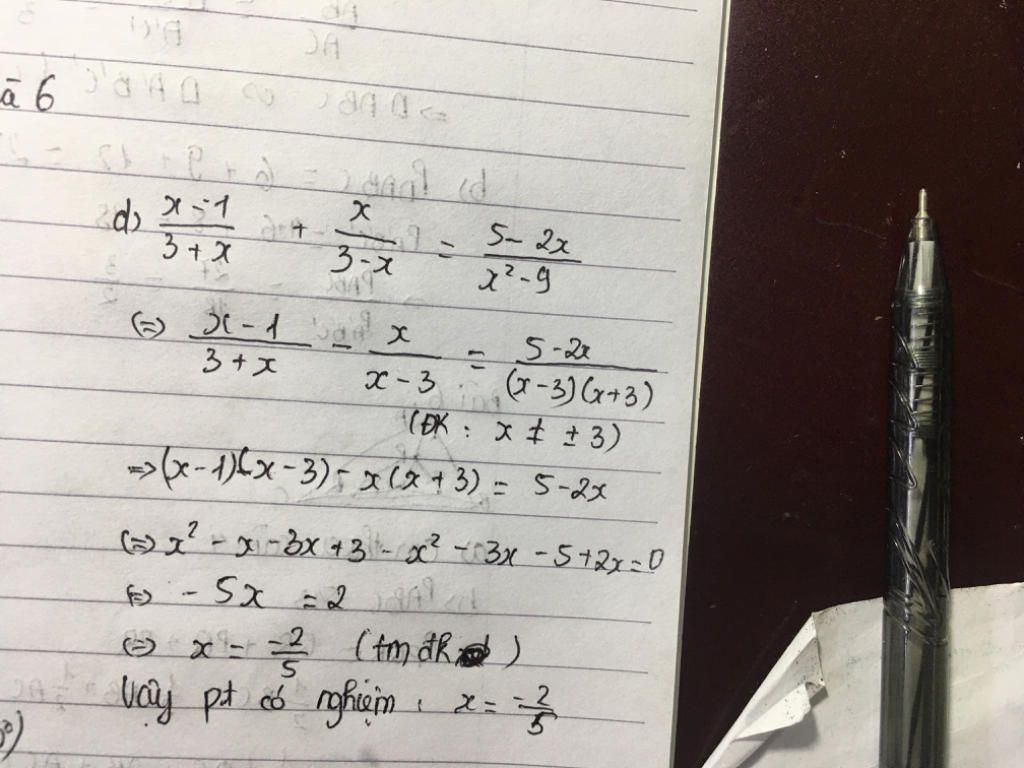 ã 6
d) \frac{x-1}{3+x} + \frac{x}{3-x} = \frac{5-2x}{x^2-9}
(=) \frac{x-1}{3+x} - \frac{x}{x-3} = \frac{5-2x}{(x-3)(x+3)}
(ĐK : x ≠ ± 3)
=> (x-1)(x-3) - x(x+3) = 5-2x
(=) x² - x - 3x + 3 - x² - 3x - 5 + 2x = 0
(=) - 5x = 2
(=) x = \frac{-2}{5} (tm đk )
Vậy pt có nghiệm : x = \frac{-2}{5}